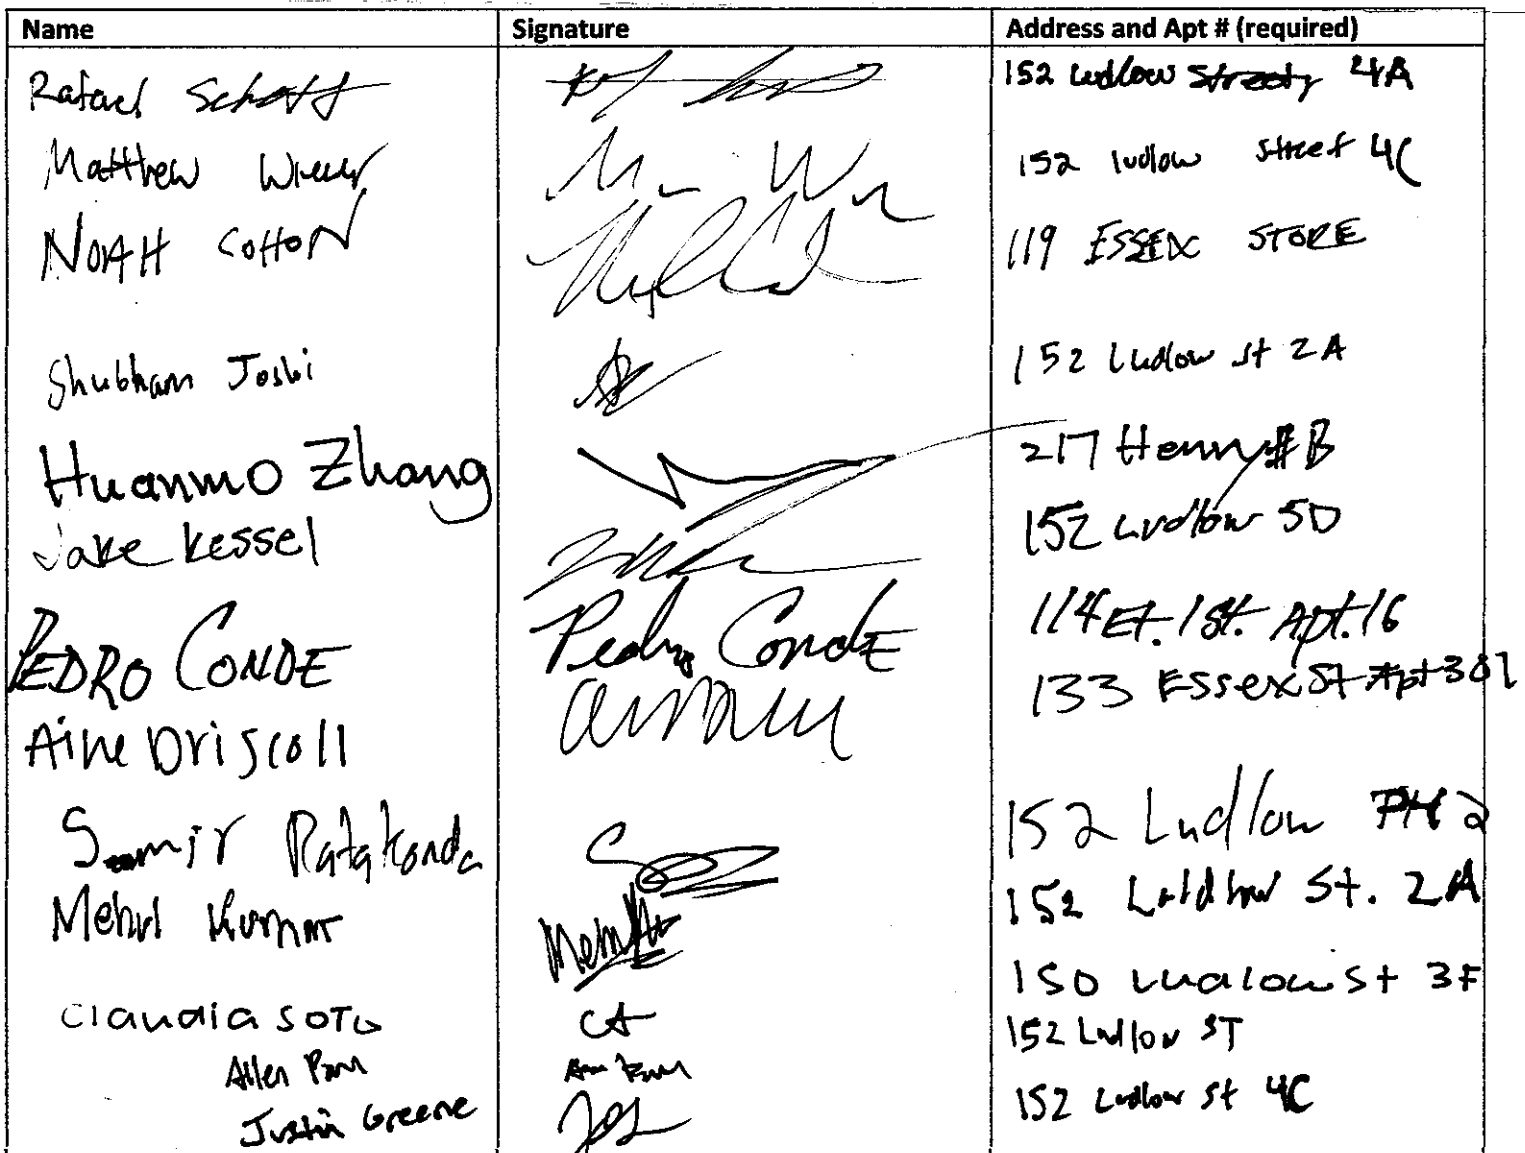 Name Signature Address and Apt # (required)
Rafael Schott 152 Ludlow Street 4A
Matthew 152 ludlow street 4C
NOAH COTTON 119 ESSEX STORE
Shubham Joshi 152 Ludlow st 2A
Huanmo Zhang 217 Henry #B
Jake Kessel 152 Ludlow 5D
PEDRO CONDE Pedro Conde 114 1 St. Apt. 16
Aine Driscoll 133 Essex St Apt 301
Samir Ratakonda 152 Ludlow PH 2
Mehul Kumar 152 St. 2A
Claudia SOTO 150 Ludlow St 3F
Allen 152 Ludlow ST
Justin Greene 152 Ludlow St 4C